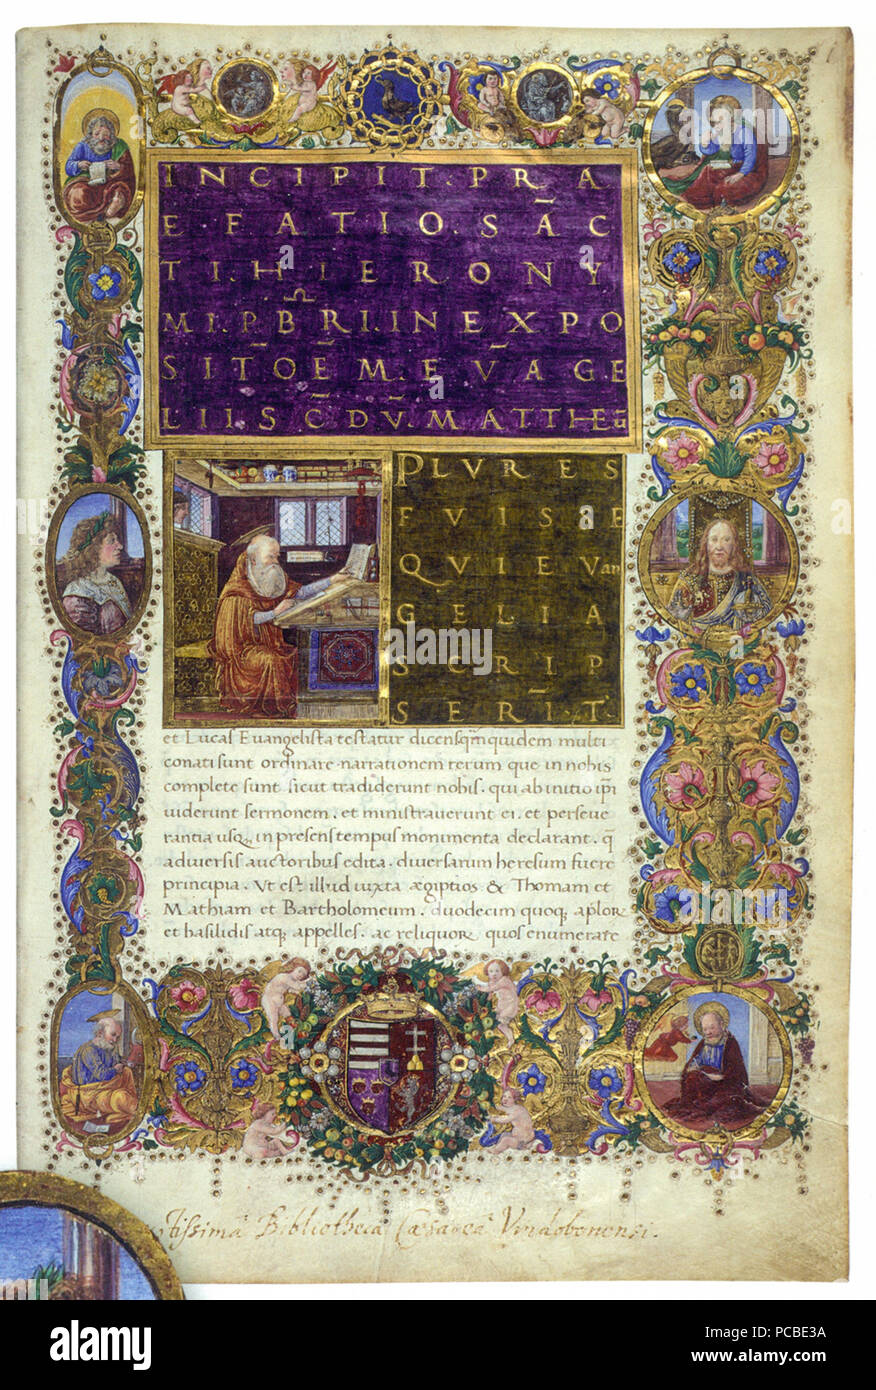 INCIPIT. PRA
EFATIO. SĀC
TI. HIERONY
MI. PBRI. IN EXPO
SITŌĒM. EVĀGE
LII. SC̄DV̄. MATTHEU
PLVRES
FVISSE
QVI EVan
GELIA
SCRIP
SERĪT.
et Lucas Evangelista testatur dicens qm̄ quidem multi
conati sunt ordinare narrationem rerum que in nobis
complete sunt sicut tradiderunt nobis. qui ab initio ip̄i
viderunt sermonem. et ministraverunt ei. et perseve
rantia usq; in presens tempus monumenta declarant. q̄
a diversis auctoribus edita. diversarum heresum fuere
principia. Vt est illud iuxta ægiptios & Thomam et
Mathiam et Bartholomeum. duodecim quoq; ap̄lor
et basilidis atq; appelles. ac reliquor quos enumerare
Bibliotheca Cæsarea Vindobonensi.
alamy
Image ID: PCBE3A
www.alamy.com